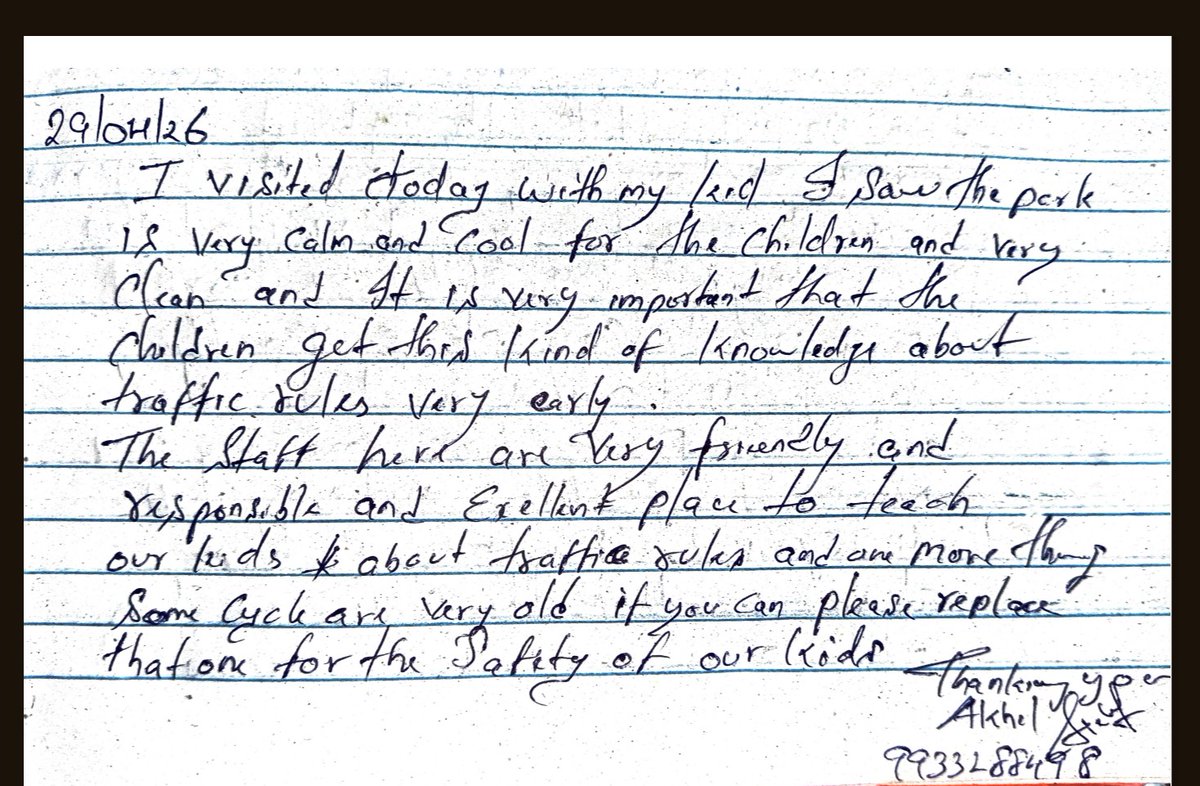 29/04/26
I visited today with my kid I saw the park
is very calm and cool for the children and very
Clean and It is very important that the
children get this kind of knowledge about
traffic rules very early.
The Staff here are very friendly and
responsible and Exellent place to teach
our kids about traffic rules and one more thing
Some Cycle are very old if you can please replace
that one for the Safety of our kids
Thanking you
Akhel
9933288498